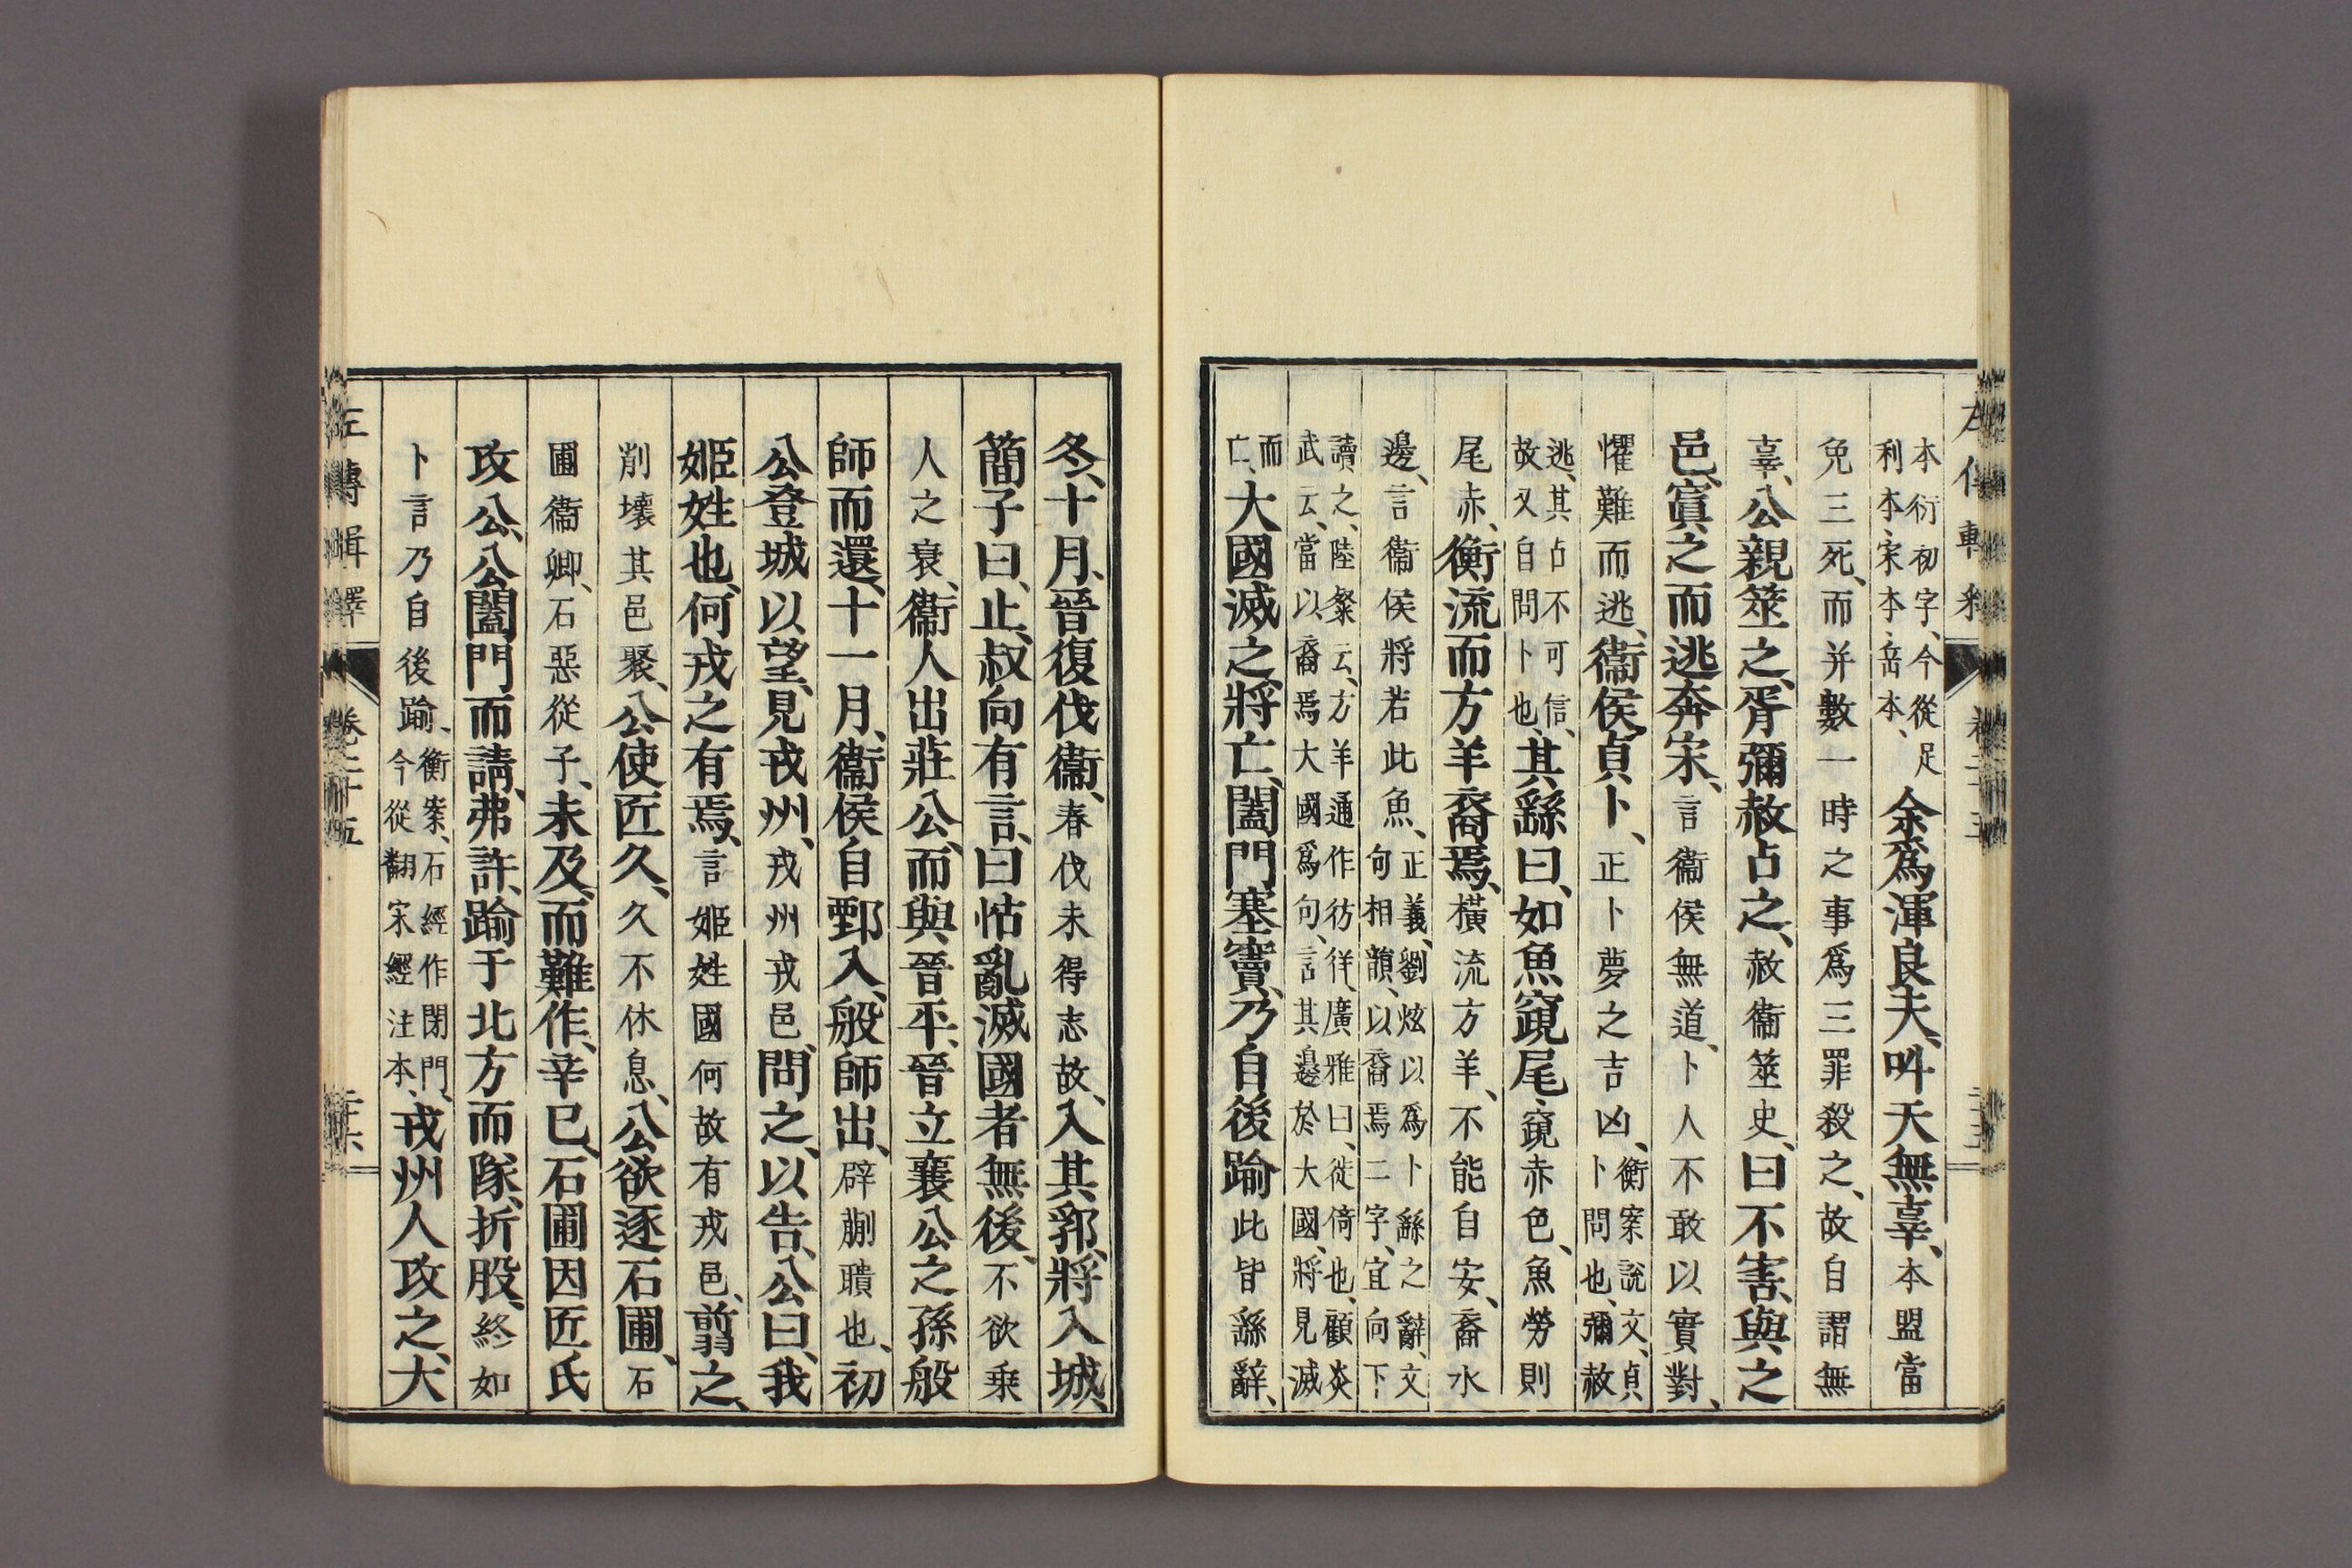 本衍初字、今從足利本、宋本、岳本、余爲渾良夫、叫天無辜、本盟當
免三死、而并數一時之事爲三罪殺之、故自謂無
辜、公親筮之、胥彌赦占之、赦衞筮史、曰不害、與之
邑、寘之而逃奔宋、言衞侯無道、卜人不敢以實對、
懼難而逃、衞侯貞卜、正卜夢之吉凶、衡案說文、貞卜問也、彌赦
逃、其占不可信、故又自問卜也、其繇曰、如魚竀尾、竀赤色、魚勞則
尾赤、衡流而方羊裔焉、橫流方羊、不能自安、裔水
邊、言衞侯將若此魚、正義、劉炫以爲卜繇之辭、文句相韻、以裔焉二字、宜向下
讀之、陸粲云、方羊通作彷徉、廣雅曰、徙倚也、顧炎武云、當以裔焉大國爲句、言其邊於大國、將見滅
而亡、大國滅之、將亡、闔門塞竇、乃自後踰、此皆繇辭、
冬、十月、晉復伐衞、春伐未得志故、入其郛、將入城、
簡子曰、止、叔向有言、曰怙亂滅國者無後、不欲乗
人之衰、衞人出莊公、而與晉平、晉立襄公之孫般
師而還、十一月、衞侯自鄄入、般師出、辟蒯聵也、初
公登城以望、見戎州、戎州戎邑、問之、以告、公曰、我
姬姓也、何戎之有焉、言姬姓國何故有戎邑、翦之、
削壞其邑聚、公使匠久、久不休息、公欲逐石圃、石
圃衞卿、石惡從子、未及、而難作、辛巳、石圃因匠氏
攻公、公闔門而請、弗許、踰于北方而隊、折股、終如
卜言乃自後踰、衡案、石經作閉門、今從翻宋經注本、戎州人攻之、大
左傳輯釋 卷二十五 二十六